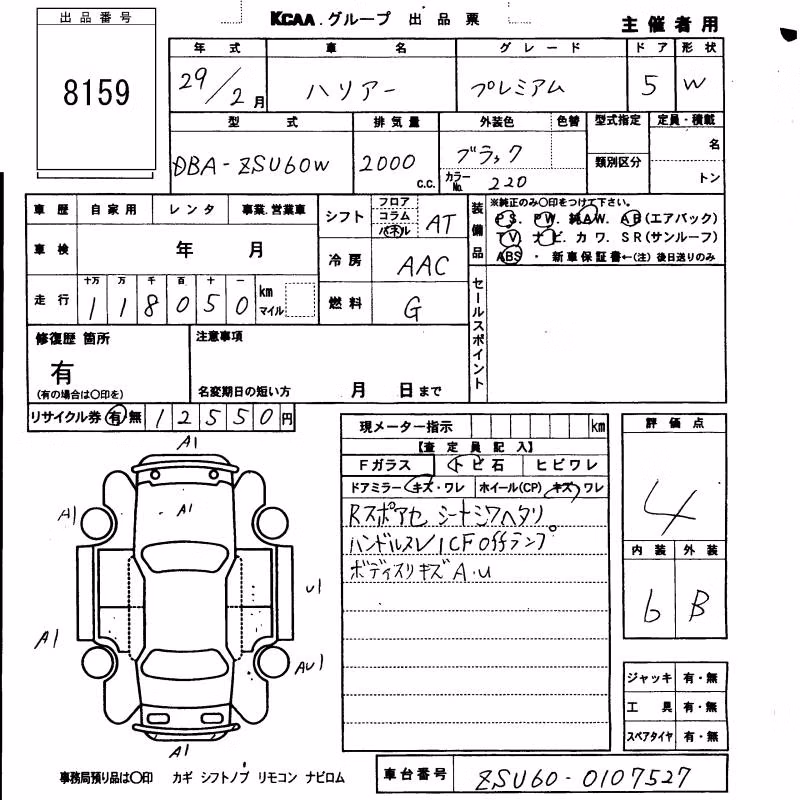 出品番号
8159
KCAA グループ 出品票
主催者用
年式 車名 グレード ドア 形状
29/2月 ハリアー プレミアム 5 W
型式 排気量 外装色 色替 型式指定 定員・積載
DBA-ZSU60W 2000 c.c. ブラック 名
カラーNo. 220 類別区分 トン
車歴 自家用 レンタ 事業.営業車
シフト フロア コラム パネル AT
車検 年 月
冷房 AAC
走行 十万 万 千 百 十 一
118050 km マイル
燃料 G
装備品 ※純正のみ○印をけて下さい。
PS. PW. 純AW. AB(エアバック)
TV. ナビ. カワ. SR(サンルーフ)
ABS ・ 新車保証書←(注) 後日送りのみ
セールスポイント
修復歴 箇所
有
(有の場合は○印を)
注意事項
名変期日の短い方 月 日まで
リサイクル券 有 無 12550円
現メーター指示 km
【査定員記入】
Fガラス トビ石 ヒビワレ
ドアミラー キズ・ワレ ホイール(CP) キズ ワレ
Rスポアセ シートシワヘタリ
ハンドルスレ/ICF Offランプ
ボディスリキズA・U
評価点
4
内装 外装
6 B
A1
A1
A1
U1
A1
AU1
A1
ジャッキ 有・無
工具 有・無
スペアタイヤ 有・無
事務局預り品は○印 カギ シフトノブ リモコン ナビロム
車台番号 ZSU60-0107527